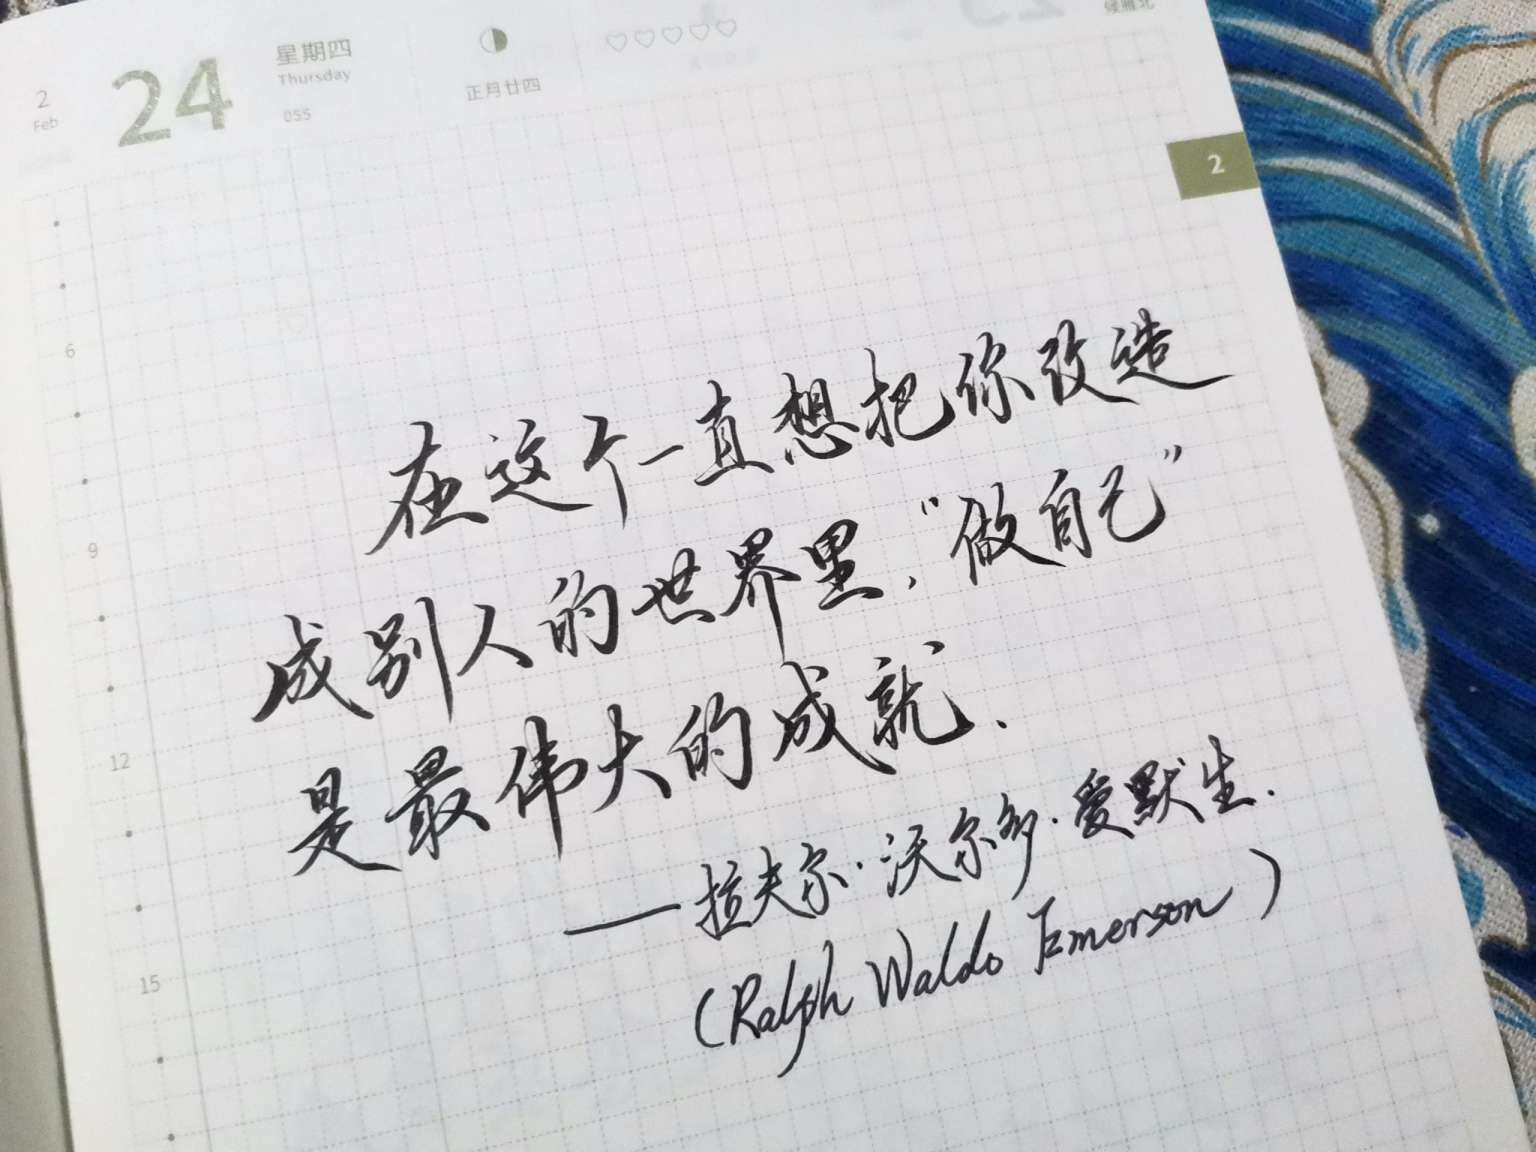 2
Feb
24
星期四
Thursday
055
正月廿四
2
6
9
12
15
在这个一直想把你改造
成别人的世界里，“做自己”
是最伟大的成就.
——拉夫尔·沃尔多·爱默生.
(Ralph Waldo Emerson)